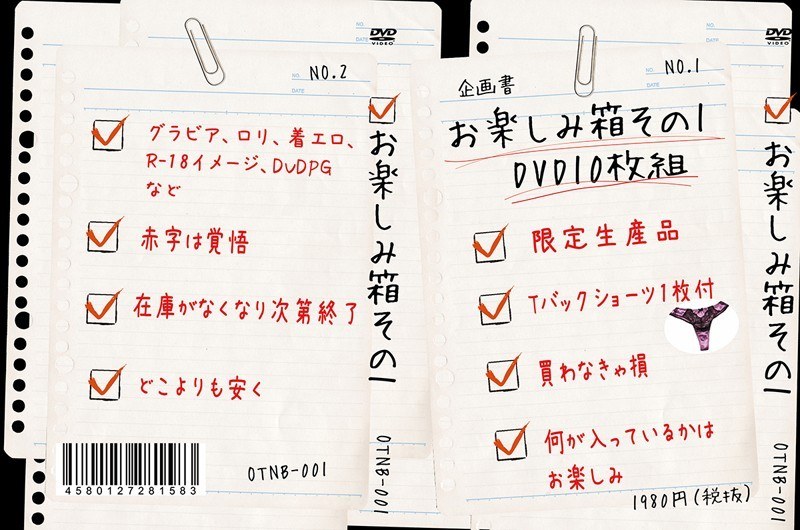 NO.
DATE
DVD
VIDEO
NO.2
DATE
グラビア、ロリ、着エロ、
R-18イメージ、DVDPG
など
赤字は覚悟
在庫がなくなり次第終了
どこよりも安く
4580127281583
OTNB-001
お楽しみ箱その1
OTNB-001
NO.
DATE
DVD
VIDEO
NO.1
DATE
企画書
お楽しみ箱その1
DVD10枚組
限定生産品
Tバックショーツ1枚付
買わなきゃ損
何が入っているかは
お楽しみ
1980円(税抜)
お楽しみ箱その1
OTNB-001